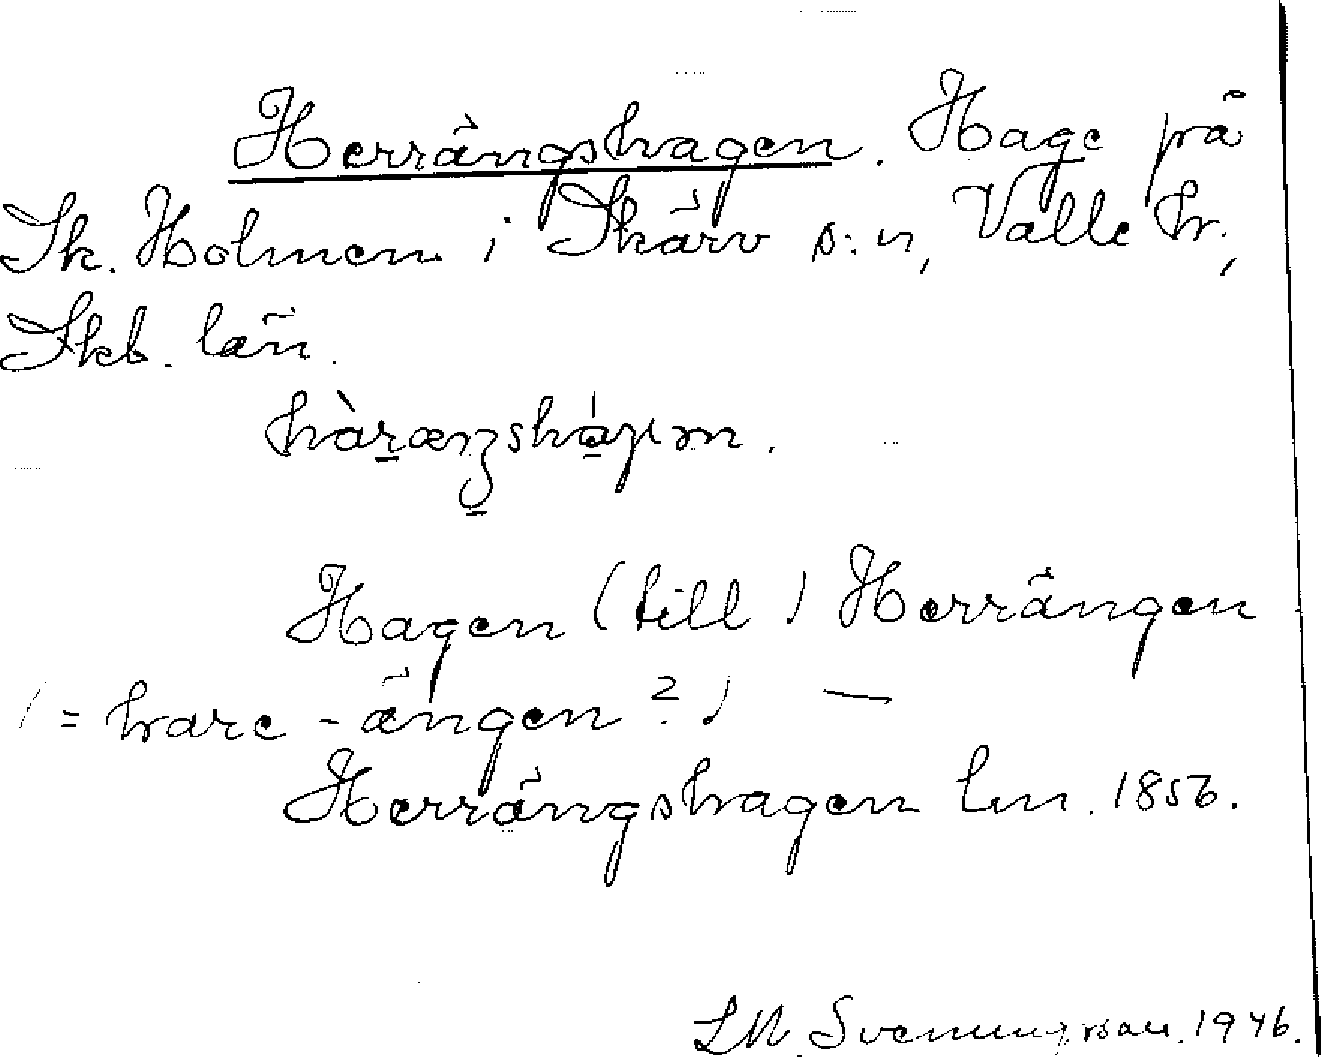 Herrängshagen. Hage på
Sk. Holmen i Skärv s:n, Valle hr.,
Skb. län.
Hagen (till) Herrängen
(= hare - ängen?) —
Herrängshagen lm. 1856.
LM. Svenungsson. 1946.